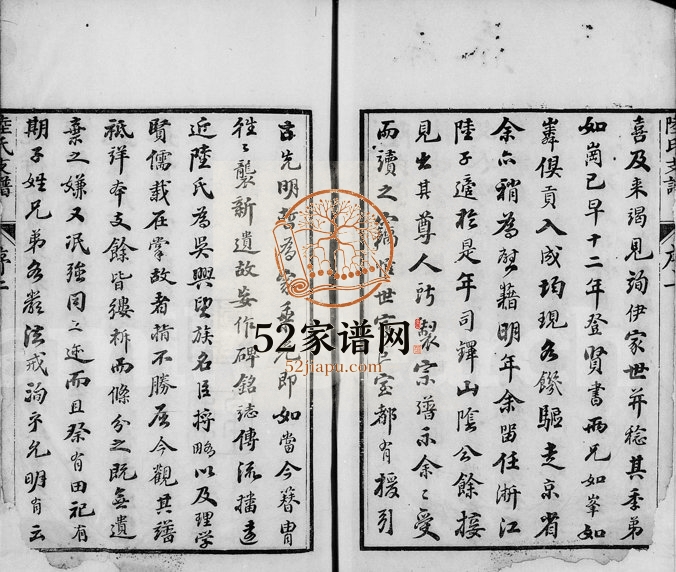 陸氏支譜 序一
喜及来謁見詢伊家世并稔其季弟
如崗已早十二年登賢書两兄如峯如
嶹俱貢入成均現各饑驅走京省
余亦稍為慰藉明年余留任浙江
陸子適於是年司鐸山陰公餘接
見出其尊人所製宗譜示余余受
而讀之竊惟世家巨室都有援引
古先明哲為家乗光即如當今簪冑
往往襲新遺故妄作碑銘誌傳流播遠
近陸氏為吳興望族名臣將略以及理学
賢儒載在掌故者指不勝屈今觀其譜
祗詳本支餘皆縷析而條分之既無遺
棄之嫌又泯強同之迹而且祭有田祀有
期子姓兄弟各嚴法戒洵乎允明有云
陸氏支譜 序二
52家谱网
52jiapu.com